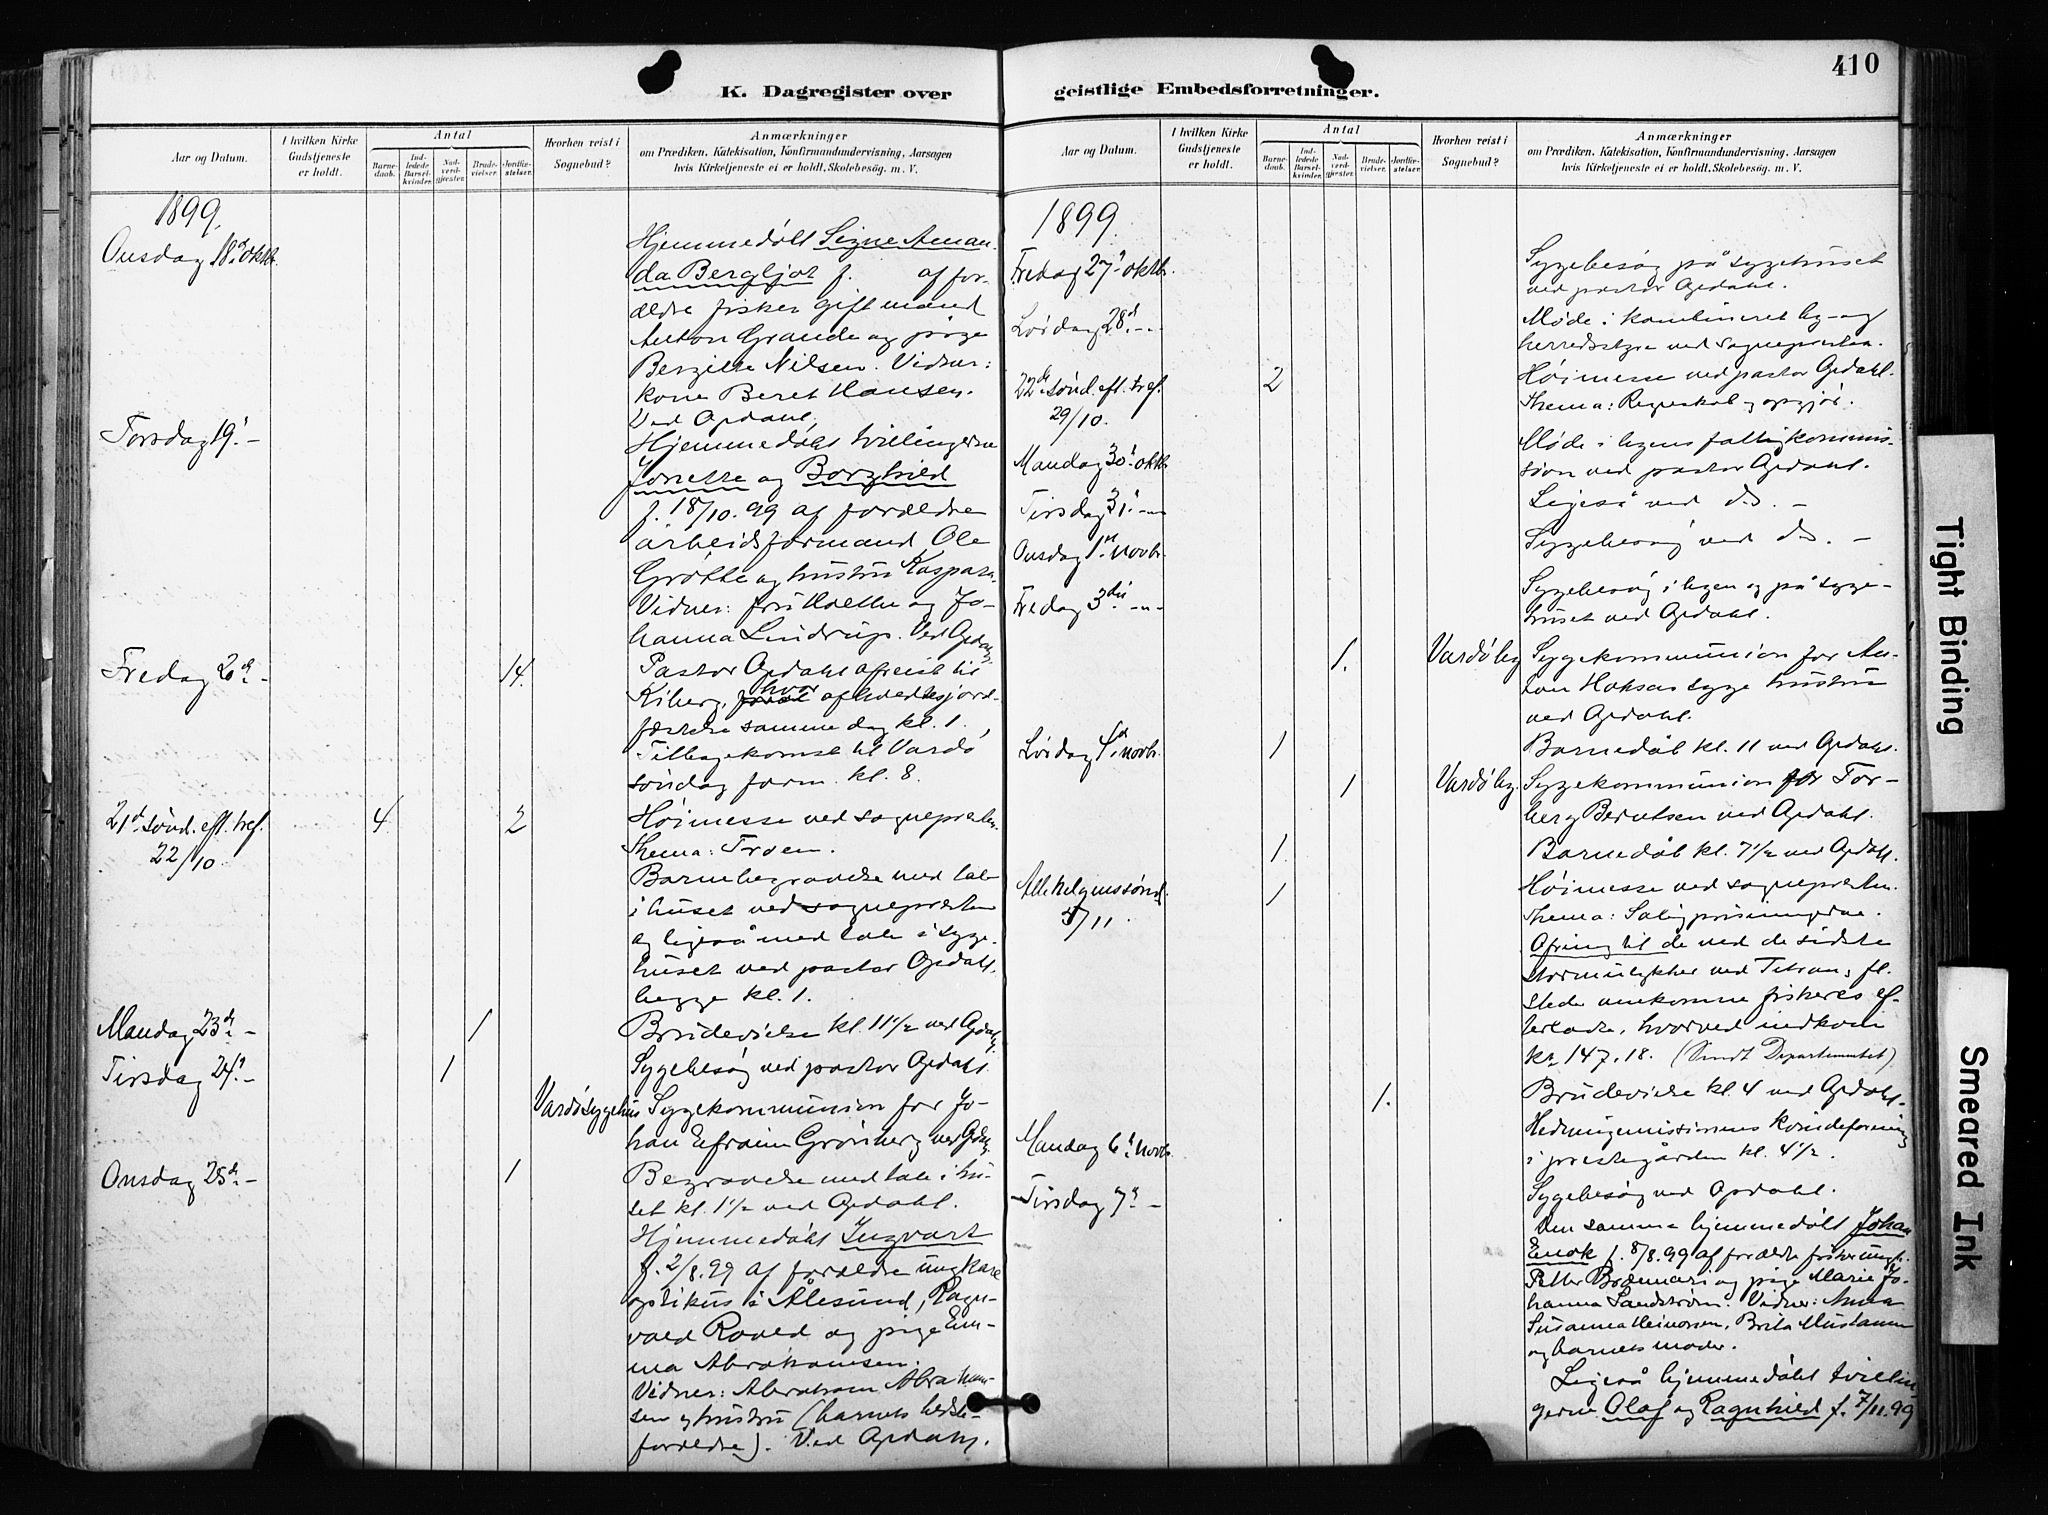 410
K. Dagregister over
geistlige Embedsforretninger.
Aar og Datum.
I hvilken Kirke Gudstjeneste er holdt.
Antal
Barnedaab.
Indledede Barselkvinder.
Nadverdgjester.
Brudevielser.
Jordfæstelser.
Hvorhen reist i Sognebud?
Anmærkninger
om Prædiken, Katekisation, Konfirmandundervisning, Aarsagen
hvis Kirketjeneste ei er holdt, Skolebesøg. m. V.
1899.
Onsdag 18d. oktb.
Hjemmedøbt Signe Aman-
da Bergljot f. af for-
ældre fisker gift mand
Anton Grande og pige
Bergitte Nilsen. Vidner:
kone Beret Hansen.
Ved Opdahl.
Torsdag 19. –
Hjemmedøbt tvillingerne
Jonette og Borghild
f. 18/10.99 af forældre
arbeidsformand Ole
Grøtte og hustru Kaspara.
Vidner: fru Koettu og Jo-
hanna Lindrup. Ved Opdahl.
Fredag 20d. –
14.
Pastor Opdahl afreist til
Kiberg, hvor afholdtes jord-
fæstelse samme dag kl. 1.
Tilbagekomst til Vardø
søndag form. kl. 8.
21d. sønd. eft. tref.
22/10.
4
2
Høimesse ved sognepresten.
Thema: Troen.
Barnebegravelse med tale
i huset ved sognepresten
og ligeså med tale i syge-
huset ved pastor Opdahl,
begge kl. 1.
Mandag 23d. –
1
Brudevielse kl. 11 1/2 ved Opdahl.
Tirsdag 24. –
1
Sygebesøg ved pastor Opdahl.
Vardø sygehus
Sygekommunion for Jo-
han Efraim Grønberg ved Opdahl.
Onsdag 25d. –
1
Begravelse med tale i hu-
set kl. 1 1/2 ved Opdahl.
Hjemmedøbt Ingvart
f. 2/8.99 af forældre ungkarl
optikus i Ålesund, Ragn-
vald Roald og pige Em-
ma Abrahamsen.
Vidner: Abraham Abraham-
sen og hustru (barnets bedste-
forældre). Ved Opdahl.
Aar og Datum.
I hvilken Kirke Gudstjeneste er holdt.
Antal
Barnedaab.
Indledede Barselkvinder.
Nadverdgjester.
Brudevielser.
Jordfæstelser.
Hvorhen reist i Sognebud?
Anmærkninger
om Prædiken, Katekisation, Konfirmandundervisning, Aarsagen
hvis Kirketjeneste ei er holdt, Skolebesøg. m. V.
1899.
Fredag 27. oktb.
Sygebesøg på sygehuset
ved pastor Opdahl.
Lørdag 28d. –
Møde i kombineret by- og
herredsstyre ved sognepresten.
22d. sønd. eft. tref.
29/10.
2
Høimesse ved pastor Opdahl.
Thema: Regnskab og opgjør.
Mandag 30. oktb.
Møde i byens fattigkommis-
sion ved pastor Opdahl.
Tirsdag 31. –
Ligeså ved ds. –
Onsdag 1ste novb.
Sygebesøg ved ds. –
Fredag 3die –
Sygebesøg i byen og på syge-
huset ved Opdahl.
1.
Vardø by
Sygekommunion for An-
ton Hoksas syge hustru
ved Opdahl.
Lørdag 4d. novb.
1
Barnedåb kl. 11 ved Opdahl.
1
Vardø by.
Sygekommunion for Tor-
berg Berntsen ved Opdahl.
1
Barnedåb kl. 7 1/2 ved Opdahl.
Allehelgenssønd.
5/11.
1
Høimesse ved sognepresten.
Thema: Saligprisningerne.
Ofring til de ved de sidste
stormulykker ved Titran o. fl.
steder omkomne fiskeres ef-
terladte, hvorved indkom
kr. 147.18. (Sendt Departementet).
1.
Brudevielse kl. 4 ved Opdahl.
Mandag 6. novb.
Hedningemissionens kvindeforening
i prestegården kl. 4 1/2.
Tirsdag 7. –
Sygebesøg ved Opdahl.
Den samme hjemmedøbt Johan
Enok f. 8/8.99 af forældre fisker ungk.
Petter Brodmari og pige Marie Jo-
hanna Sandstrøm. Vidner: Anna
Susanna Heinonen, Brita Mustanen
og barnets moder.
Ligeså hjemmedøbt tvillin-
gerne Olaf og Ragnhild f. 7/11.99
Tight Binding
Smeared Ink